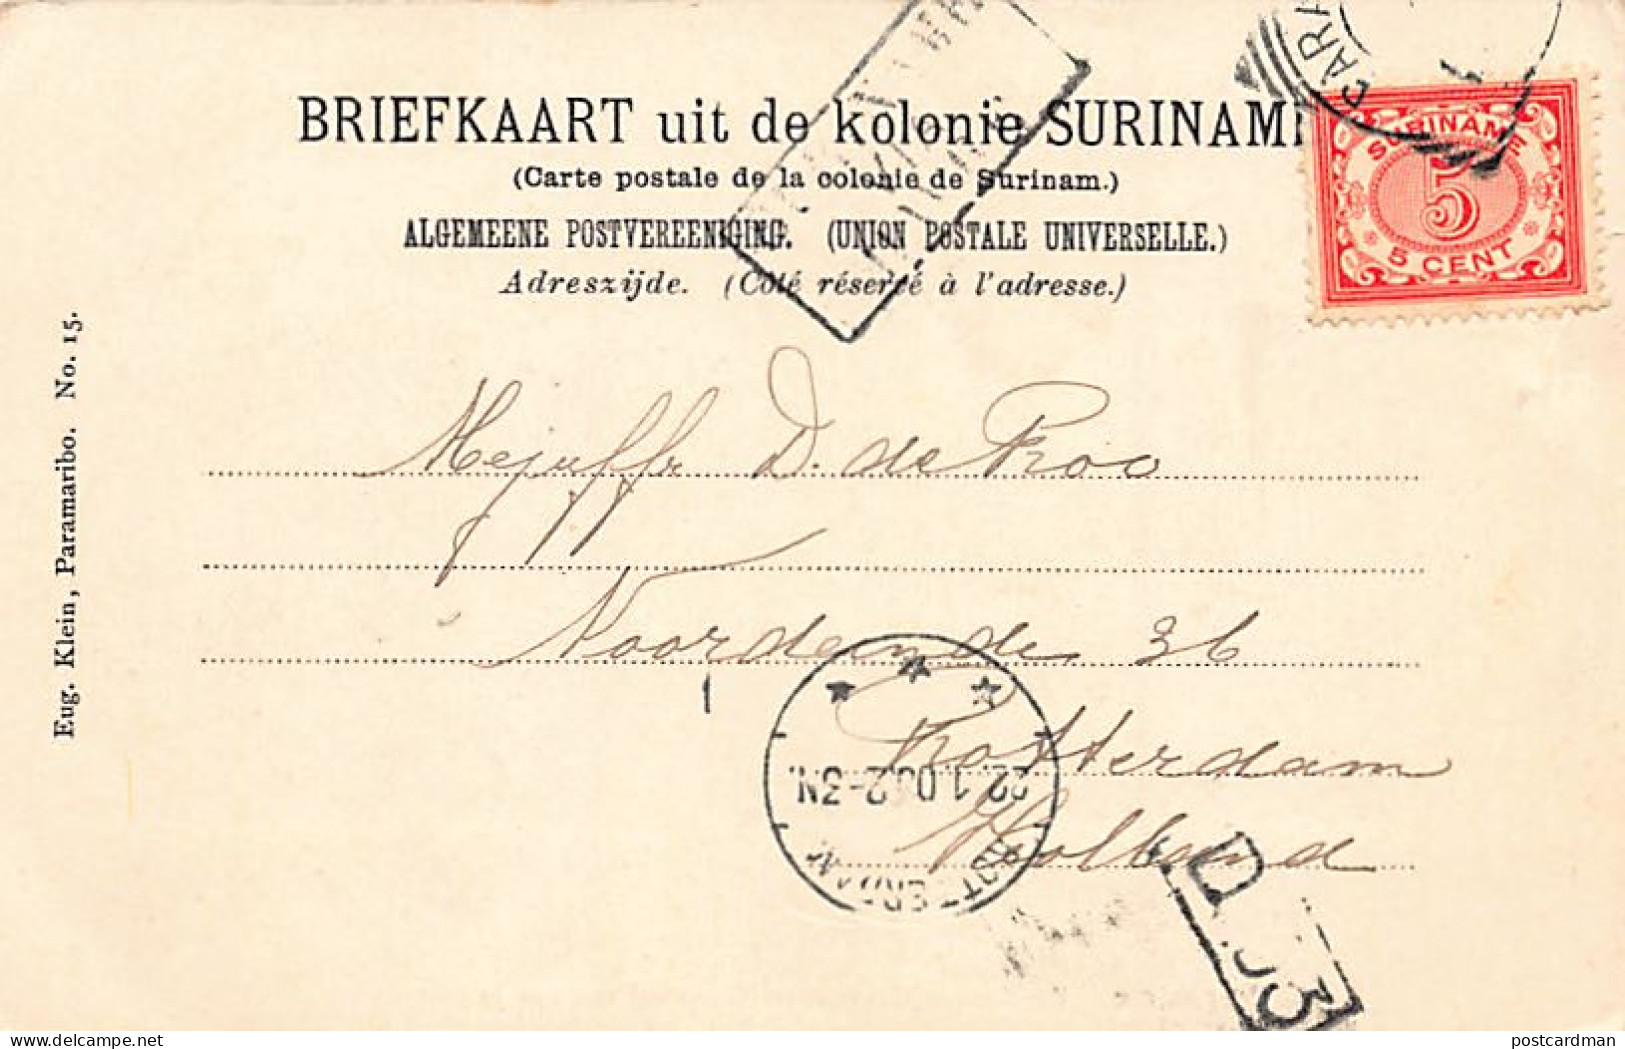 BRIEFKAART uit de kolonie SURINAM
(Carte postale de la colonie de Surinam.)
ALGEMEENE POSTVEREENIGING. (UNION POSTALE UNIVERSELLE.)
Adreszijde. (Côté réservé à l'adresse.)
SURINAME
5
5 CENT
PARA
Eug. Klein, Paramaribo. No. 15.
Mejuffr D. de Roo
36
Rotterdam
Holland
22.1.0 2-3N.
ROTTERDAM
D 53
postcardman